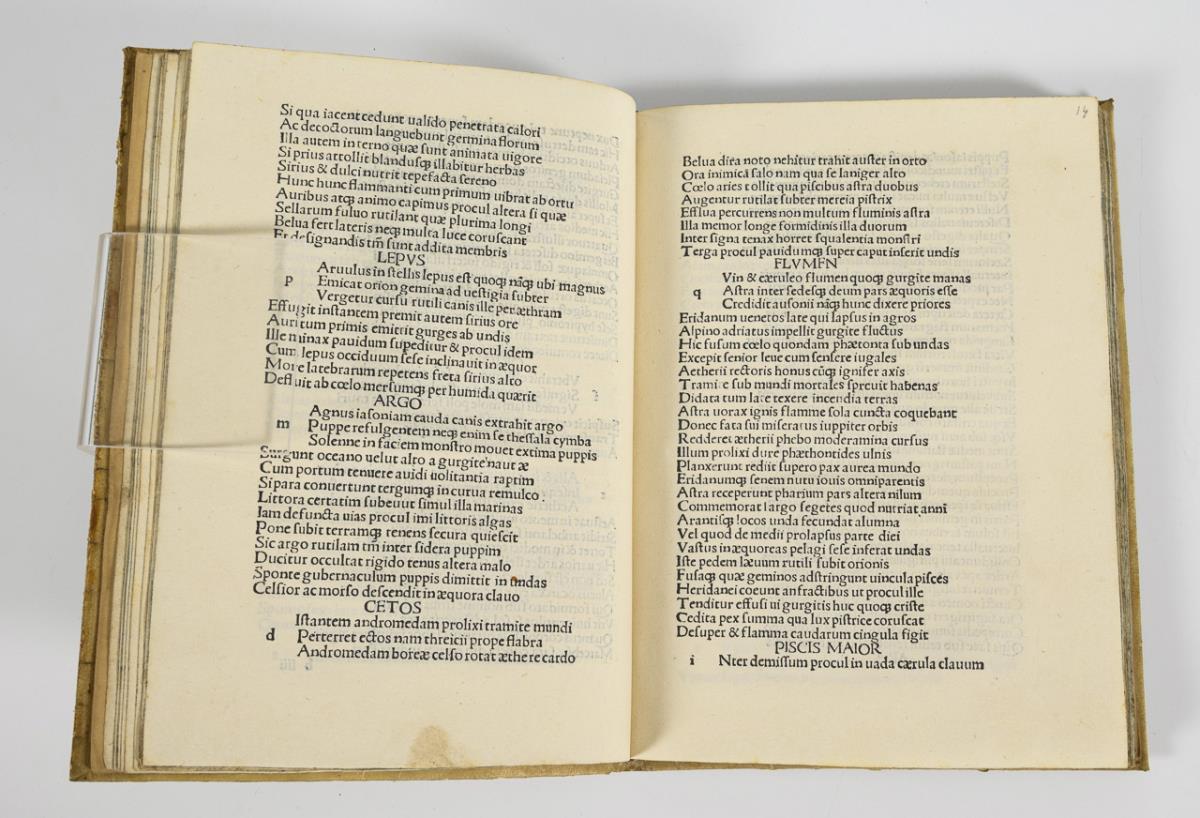 Si qua iacent cedunt ualido penetrata calori
Ac decoctorum languebunt germina florum
Illa autem interno quæ sunt animata uigore
Si prius attollit blandusqꝫ illabitur herbas
Sirius & dulci nutrit tepefacta sereno
Hunc hunc flammanti cum primum uibrat ab ortu
Auribus atqꝫ animo capimus procul altera si quæ
Sellarum fuluo rutilant quæ plurima longi
Belua fert lateris neqꝫ multa luce coruscant
Et designandis tm̄ sunt addita membris
LEPVS
Aruulus in stellis lepus est quoqꝫ nāqꝫ ubi magnus
p Emicat orion gemina ad uestigia subter
Vergetur cursu rutili canis ille per æthram
Effugit instantem premit autem sirius ore
Auritum primis emittit gurges ab undis
Ille minax pauidum supeditur & procul idem
Cum lepus occiduum sese inclinauit in æquor
More latebrarum repetens freta sirius alto
Defluit ab cœlo mersumqꝫ per humida quærit
ARGO
Agnus iasoniam cauda canis extrahit argo
m Puppe refulgentem neqꝫ enim se thessala cymba
Solenne in faciem monstro mouet extima puppis
Surgunt oceano uelut alto a gurgite nautæ
Cum portum tenuere auidi uolitantia raptim
Si para conuertunt tergumqꝫ in curua remulco
Littora certatim subeuut simul illa marinas
Iam defuncta uias procul imi littoris algas
Pone subit terramqꝫ tenens secura quiescit
Sic argo rutilam tm̄ inter sidera puppim
Ducitur occultat rigido tenus altera malo
Sponte gubernaculum puppis dimittit in undas
Celsior ac morso descendit in æquora clauo
CETOS
Istantem andromedam prolixi tramite mundi
d Perterret ectos nam threicii prope flabra
Andromedam boreæ celso rotat æthere cardo
14
Belua dira noto nehitur trahit auster in orto
Ora inimicā salo nam qua se laniger alto
Cœlo aries tollit qua piscibus astra duobus
Augentur rutilat subter mereia pistrix
Efflua percurrens non multum fluminis astra
Illa memor longe formidinis illa duorum
Inter signa tenax horret squalentia monstri
Terga procul pauidumqꝫ super caput inserit undis
FLVMEN
Vin & cæruleo flumen quoqꝫ gurgite manas
q Astra inter sedesqꝫ deum pars æquoris esse
Credidit ausonii nāqꝫ hunc dixere priores
Eridanum uenetos late qui lapsus in agros
Alpino adriatus impellit gurgite fluctus
Hic fusum cœlo quondam phætonta sub undas
Excepit senior leue cum sensere iugales
Aetherii rectoris honus cūqꝫ ignifer axis
Tramite sub mundi mortales spreuit habenas
Didata tum late texere incendia terras
Astra uorax ignis flamme sola cuncta coquebant
Donec fata sui miseratus iuppiter orbis
Redderet ætherii phebo moderamina cursus
Illum prolixi dure phæthondites ulnis
Planxerunt rediit supero pax aurea mundo
Eridanumqꝫ senem nutu iouis omniparentis
Astra receperunt pharium pars altera nilum
Commemorat largo segetes quod nutriat anni
Arantisqꝫ locos unda fecundat alumna
Vel quod de medii prolapsus parte diei
Vastus in æquoreas pelagi sese inferat undas
Iste pedem læuum rutili subit orionis
Fusaqꝫ quæ geminos adstringunt uincula pisces
Heridanei coeunt anfractibus ut procul ille
Tenditur effusi ui gurgitis huc quoqꝫ criste
Cedita pex summa qua lux pistrice coruscat
Desuper & flamma caudarum cingula figit
PISCIS MAIOR
i Nter demissum procul in uada cærula clauum